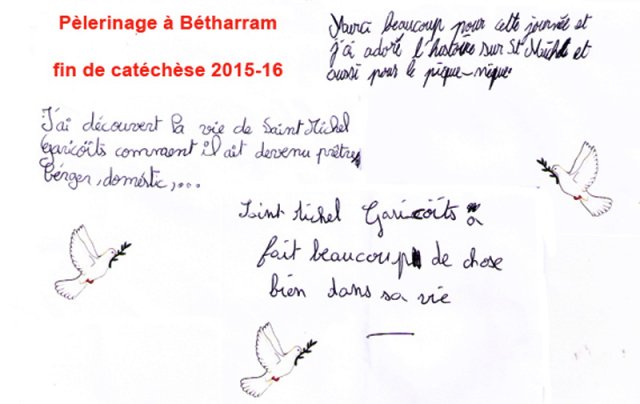 Pèlerinage à Bétharram
fin de catéchèse 2015-16
Merci beaucoup pour cette journée et
j'ai adoré l'histoire sur St Michel et
aussi pour le pique-nique.
J'ai découvert la vie de Saint Michel
Garicoïts comment il ait devenu prêtre,
berger, doméstic,...
Saint Michel Garicoïts a
fait beaucoup de chose
bien dans sa vie